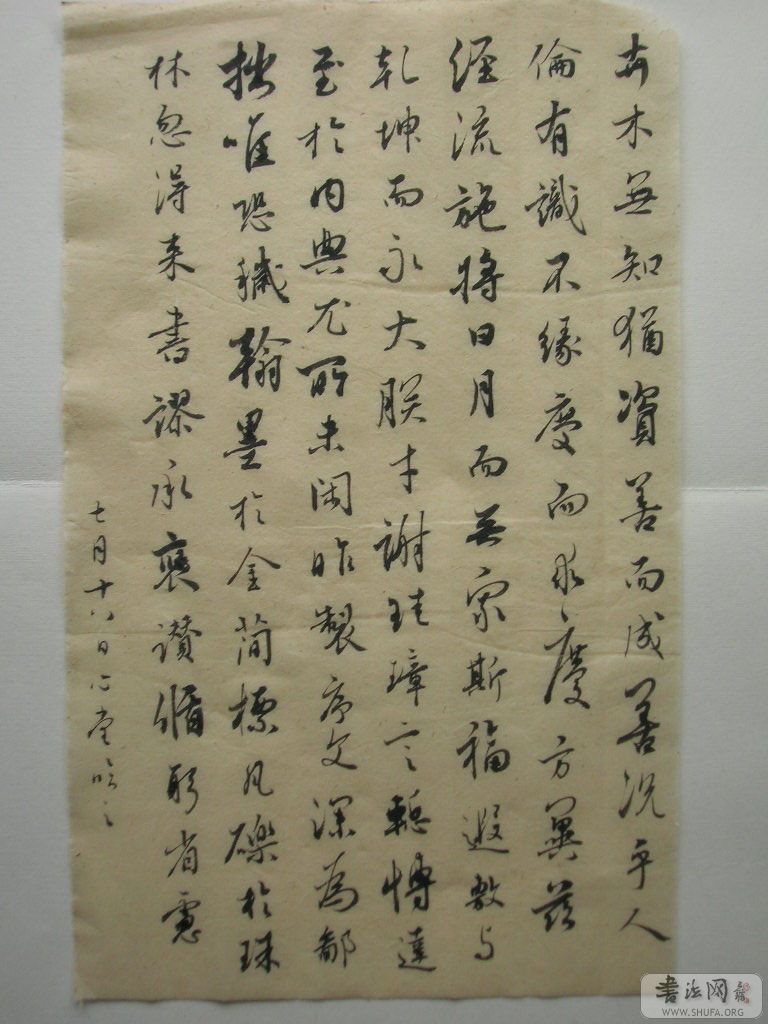 卉木無知猶資善而成善況乎人
倫有識不緣慶而求慶方冀茲
經流施將日月而無窮斯福遐敷与
乾坤而永大朕才謝珪璋言慙博達
至於内典尤所未閑昨製序文深為鄙
拙唯恐穢翰墨於金簡標瓦礫於珠
林忽得来書謬承褒讚循躬省慮
七月十八日心堂臨之
書法网
WWW.SHUFA.ORG